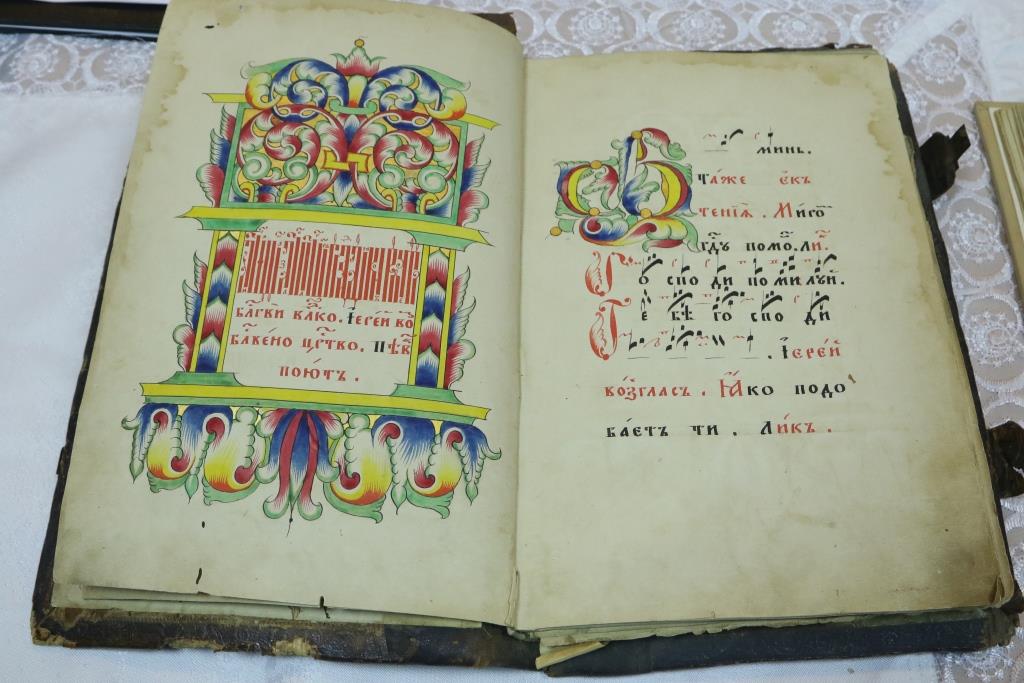 бл҃гви вл҃ко. Іерей во҃
бл҃вено цр҃тво. Пѣв҃
пою́тъ.
минь.
Та́же єкъ
тенїѧ̀. Ми́го
гдꙋ помо. Ли́.
Го спо ди по ми лꙋй.
Те бѣ го спо ди
. Іере́й
во́згласъ. Ꙗ҆́ко подо
ба́етъ ти. Ли́къ.